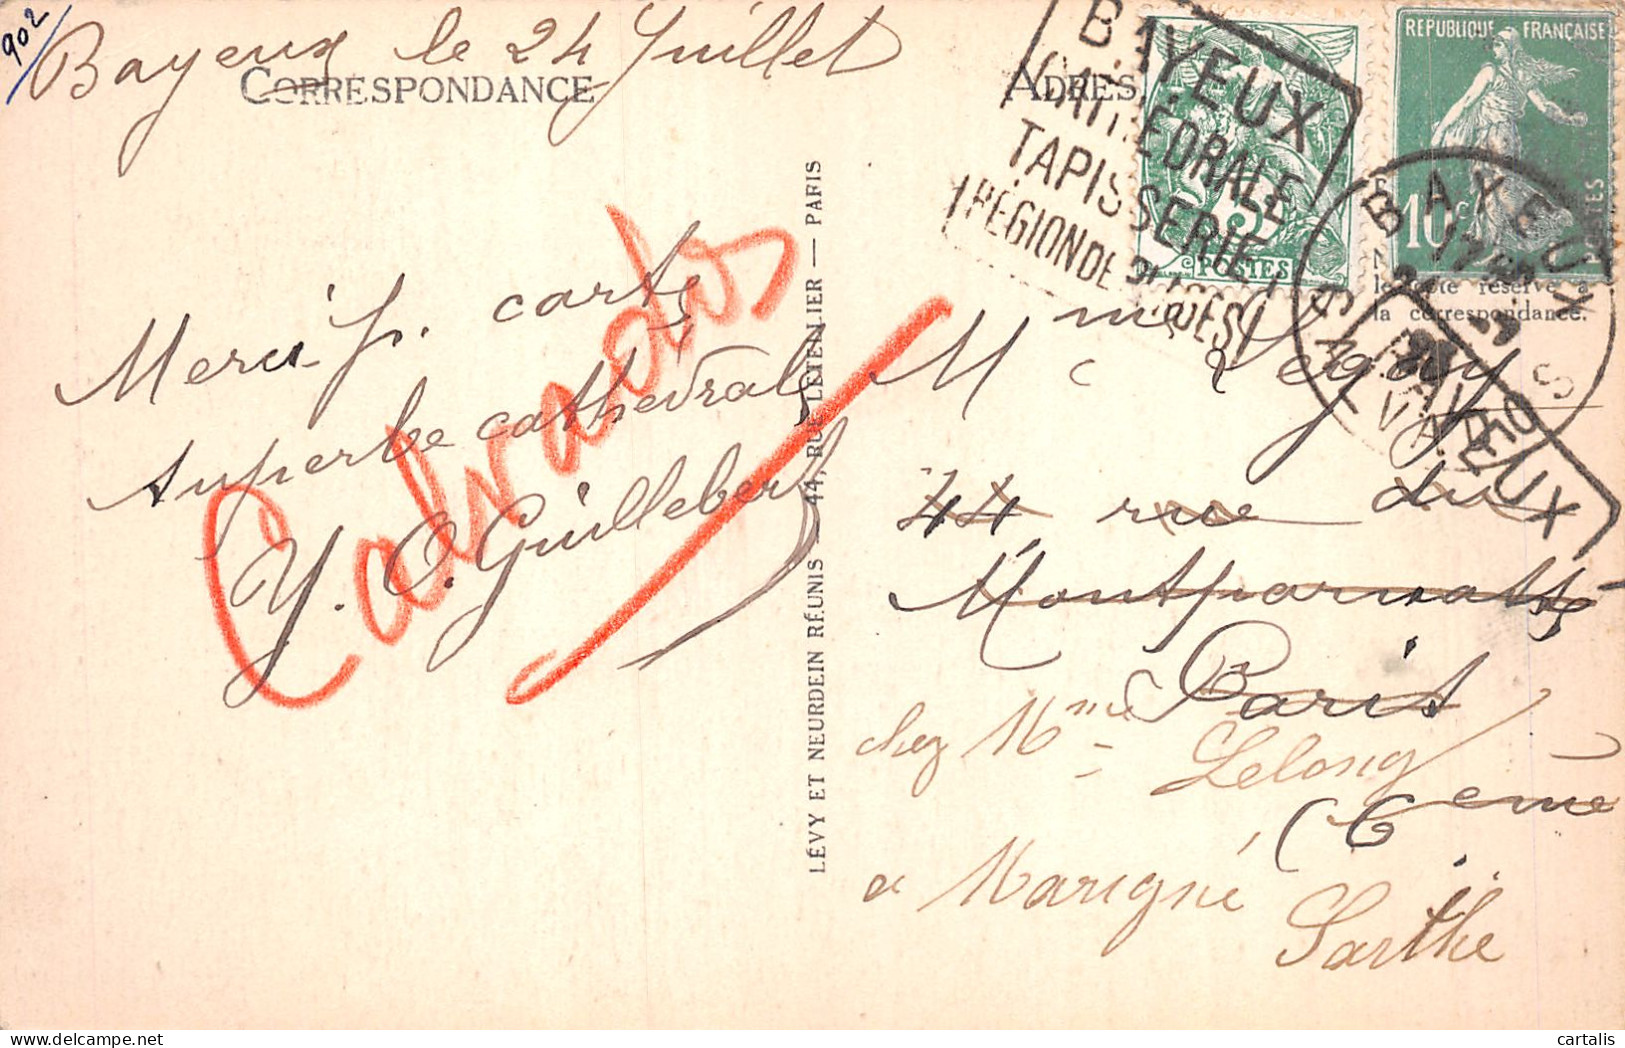 902
Bayeux le 24 Juillet
CORRESPONDANCE
ADRES
Merci p. carte
superbe cathédrale
Y. O. Guillebert
Calvados
LÉVY ET NEURDEIN RÉUNIS — 44, RUE LETELLIER — PARIS
BAYEUX
CATHÉDRALE
TAPISSERIE
RÉGION DE PLAGES
5
POSTES
REPUBLIQUE FRANÇAISE
10c
POSTES
BAYEUX
CALVADOS
le côté réservé à
la correspondance.
BAYEUX
Mme
44 rue du
Montparnasse
Paris
(6eme
chez Mme Lelong
à Marigné
Sarthe
cartalis